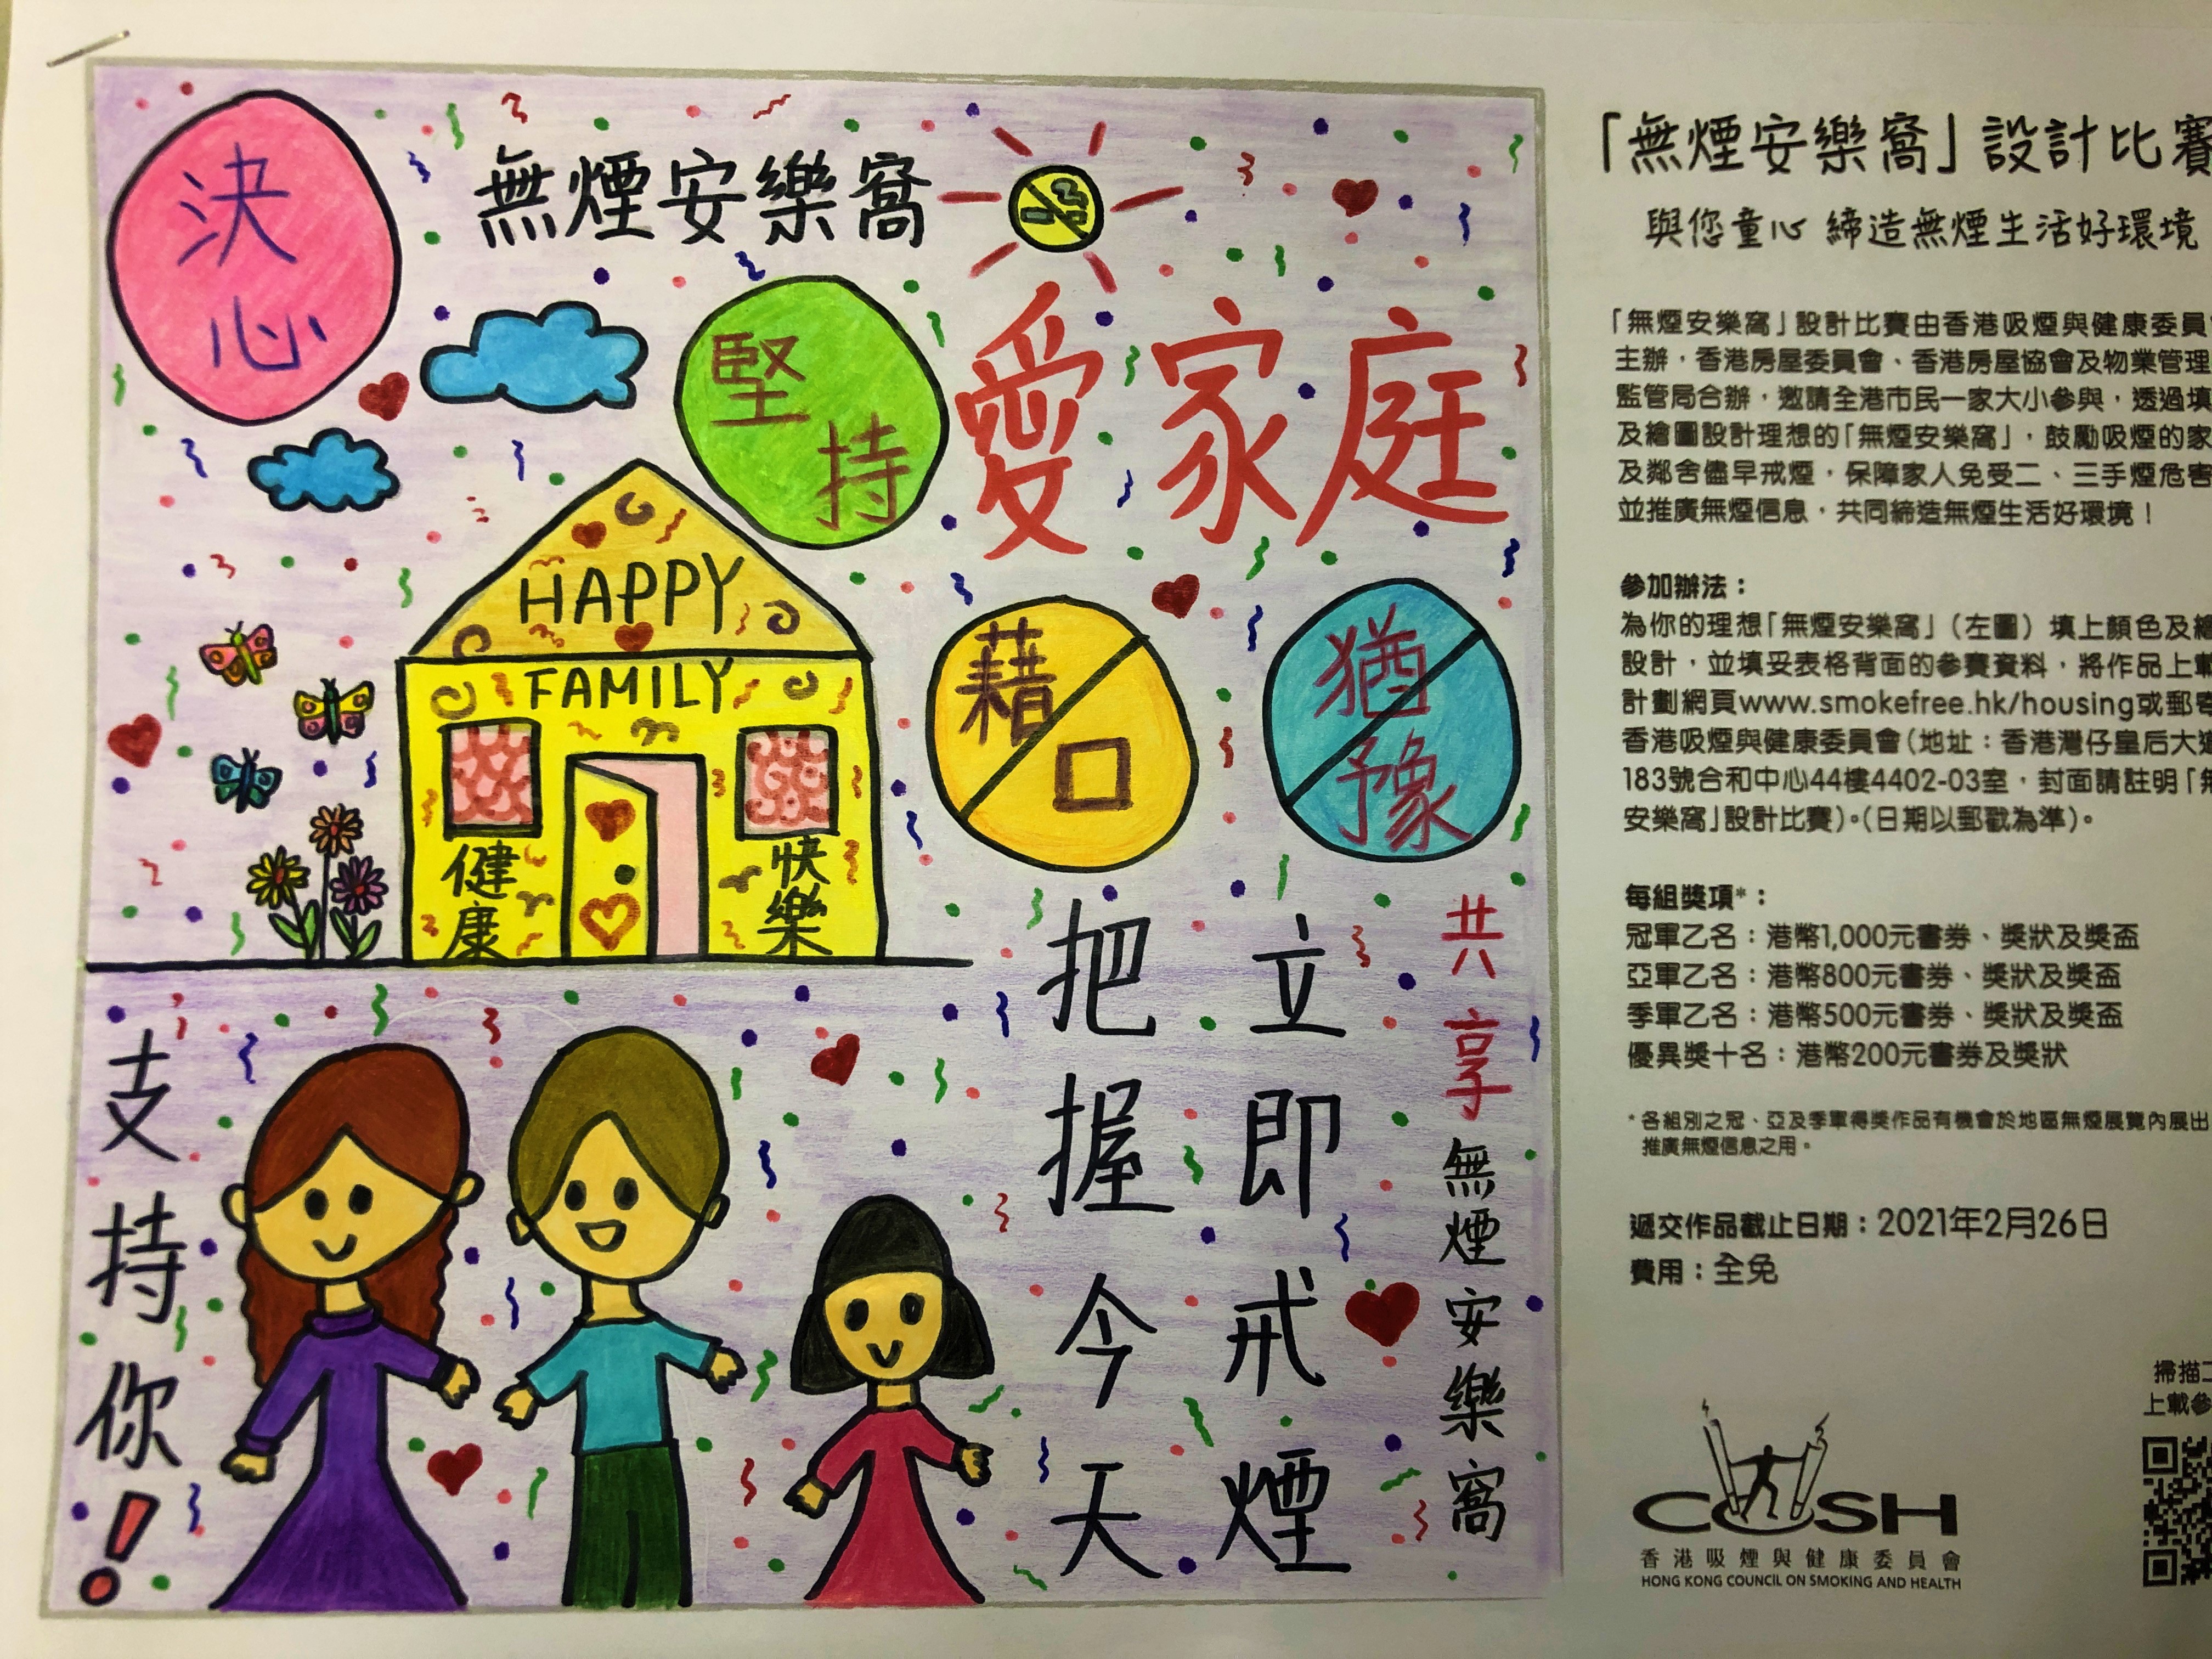 決
心
無煙安樂窩
堅
持
愛家庭
HAPPY
FAMILY
健康
快樂
藉
口
猶
豫
把握今天
立即戒煙
共享無煙安樂窩
支持你!
「無煙安樂窩」設計比賽
與您童心 締造無煙生活好環境
「無煙安樂窩」設計比賽由香港吸煙與健康委員
主辦，香港房屋委員會、香港房屋協會及物業管理
監管局合辦，邀請全港市民一家大小參與，透過填
及繪圖設計理想的「無煙安樂窩」，鼓勵吸煙的家
及鄰舍儘早戒煙，保障家人免受二、三手煙危害
並推廣無煙信息，共同締造無煙生活好環境！
參加辦法：
為你的理想「無煙安樂窩」（左圖）填上顏色及繪
設計，並填妥表格背面的參賽資料，將作品上載
計劃網頁www.smokefree.hk/housing或郵寄
香港吸煙與健康委員會（地址：香港灣仔皇后大道
183號合和中心44樓4402-03室，封面請註明「無
安樂窩」設計比賽）。（日期以郵戳為準）。
每組獎項*：
冠軍乙名：港幣1,000元書券、獎狀及獎盃
亞軍乙名：港幣800元書券、獎狀及獎盃
季軍乙名：港幣500元書券、獎狀及獎盃
優異獎十名：港幣200元書券及獎狀
* 各組別之冠、亞及季軍得獎作品有機會於地區無煙展覽內展出
推廣無煙信息之用。
遞交作品截止日期：2021年2月26日
費用：全免
掃描二
上載參
COSH
香港吸煙與健康委員會
HONG KONG COUNCIL ON SMOKING AND HEALTH